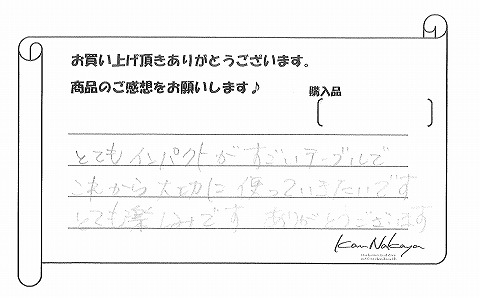 お買い上げ頂きありがとうございます。
商品のご感想をお願いします♪
購入品
とてもインパクトがすごいテーブルで
これから大切に使っていきたいです
とても楽しみです ありがとうございます
Kan Nakaya